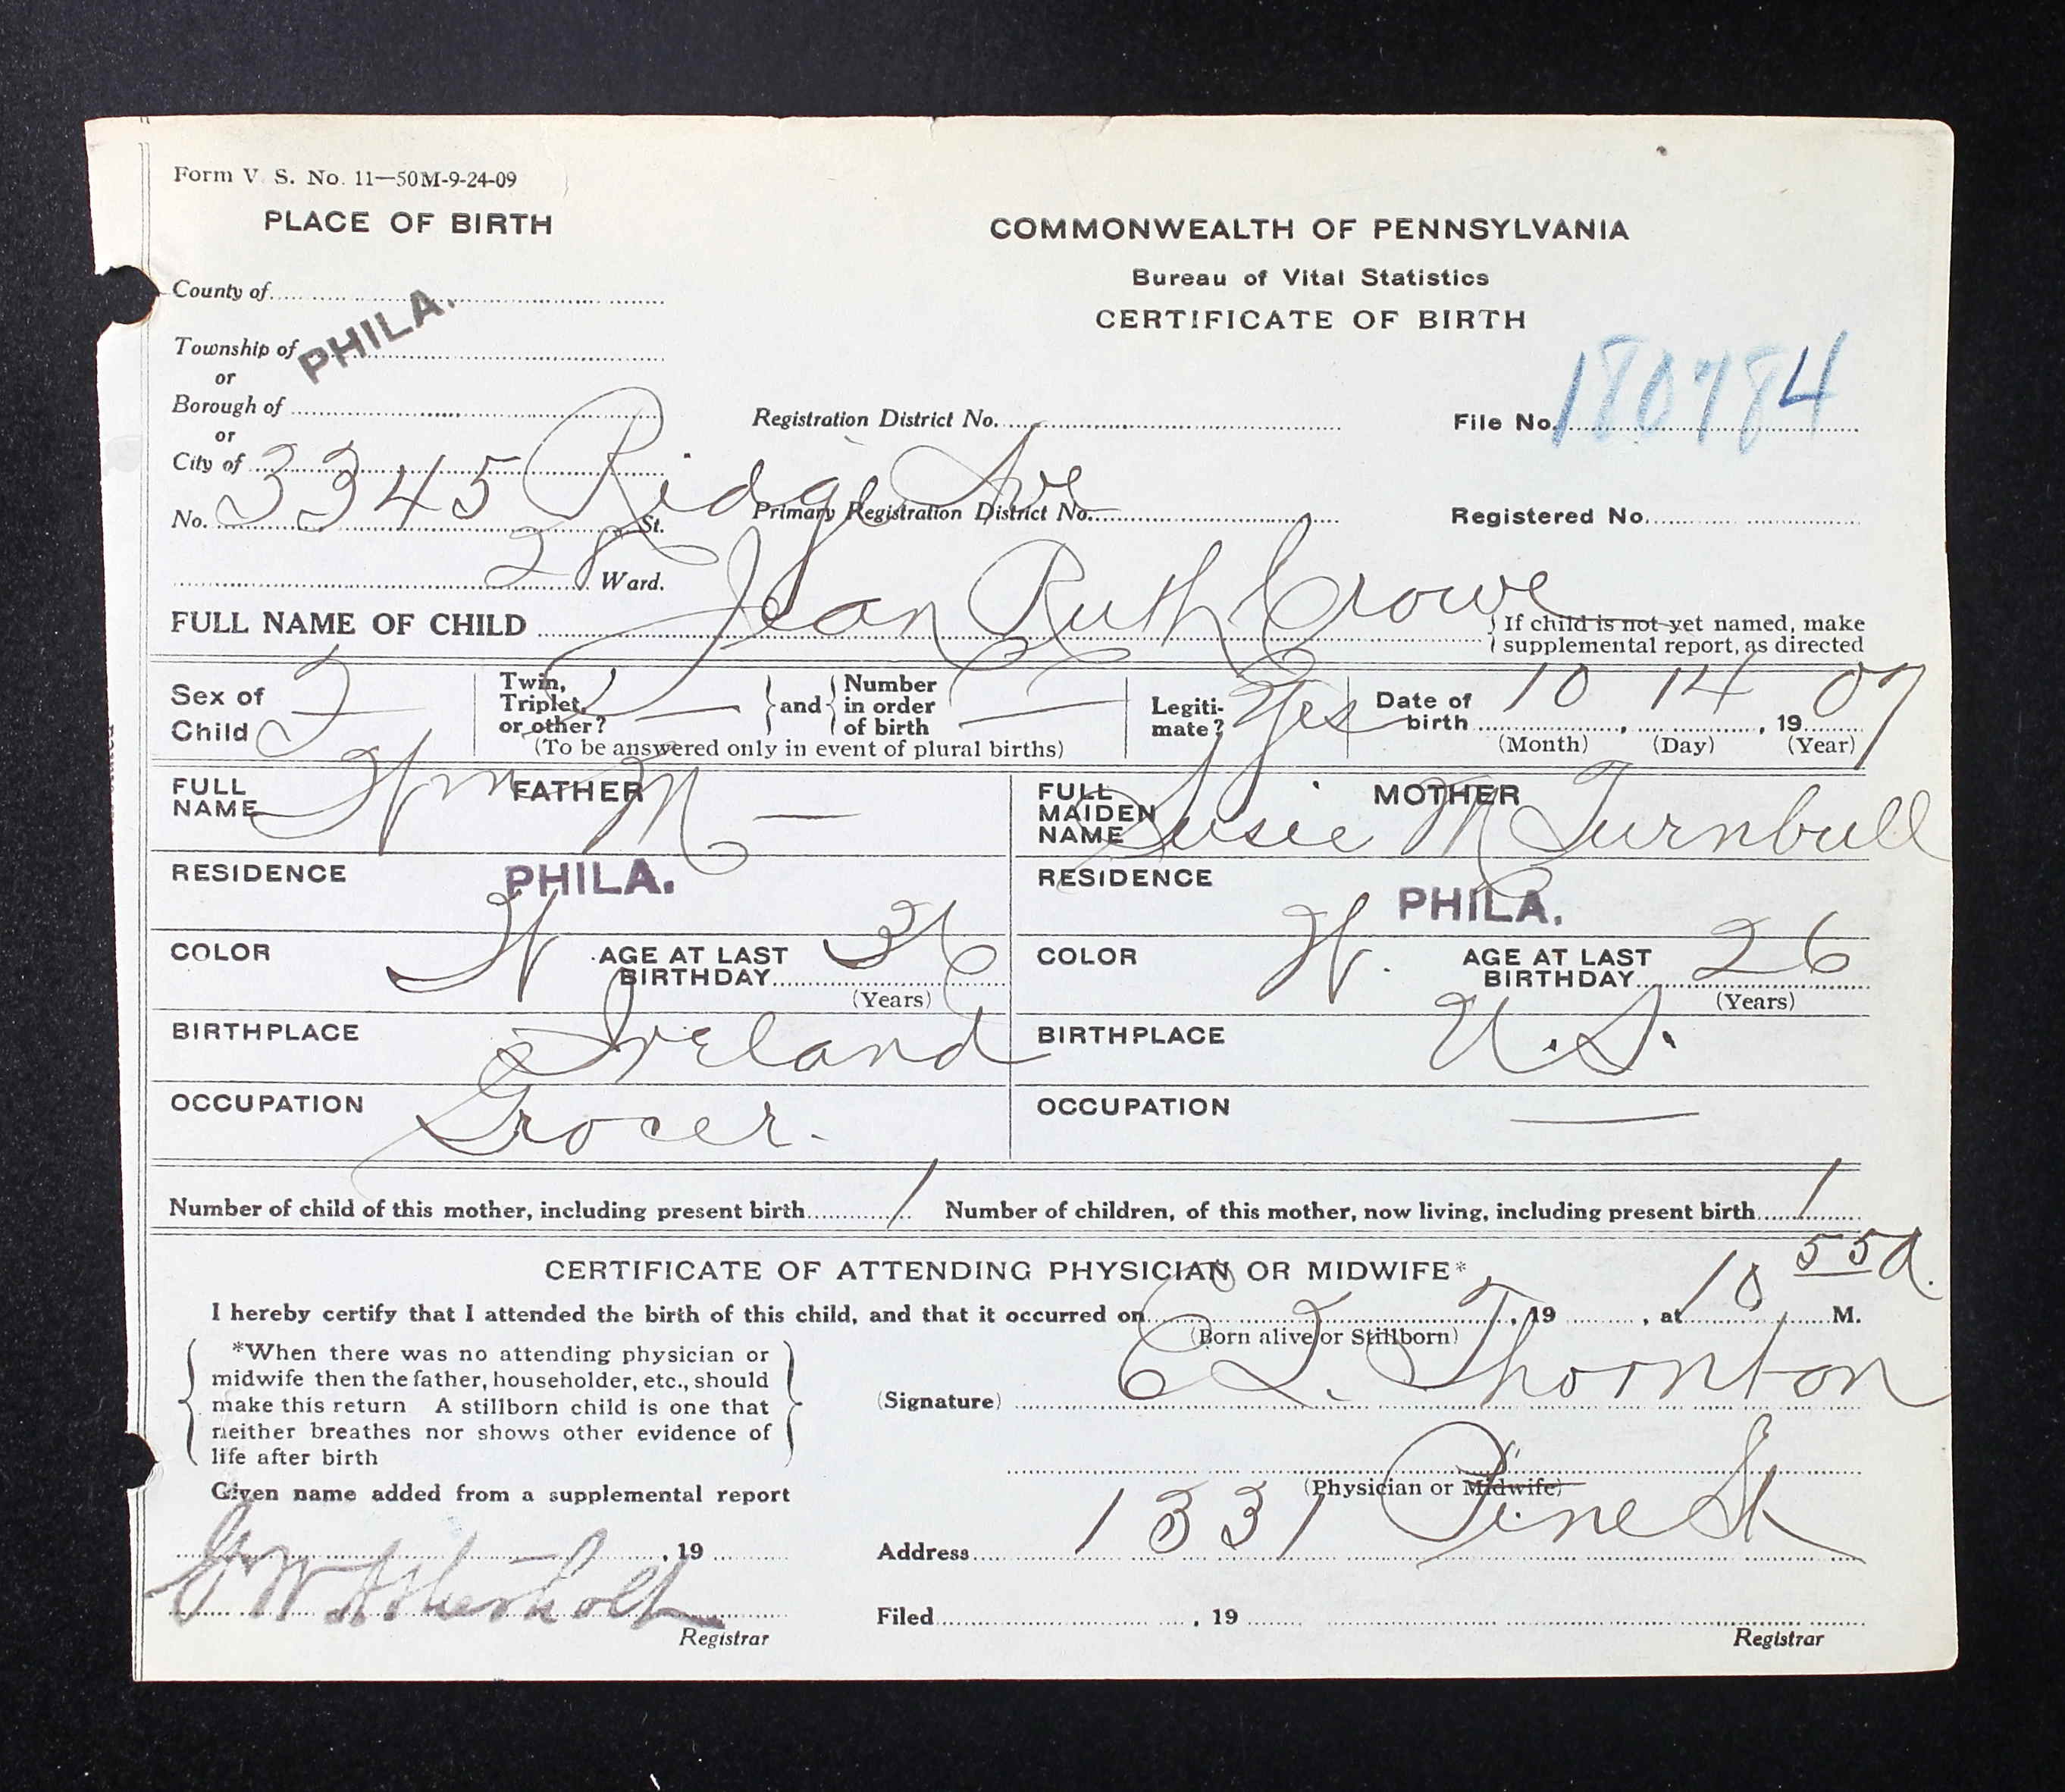 Form V. S. No. 11—50M-9-24-09
PLACE OF BIRTH
County of
PHILA.
Township of
or
Borough of
or
City of
No. 3345 Ridge Ave St.
28 Ward.
COMMONWEALTH OF PENNSYLVANIA
Bureau of Vital Statistics
CERTIFICATE OF BIRTH
Registration District No.
File No. 180784
Primary Registration District No.
Registered No.
FULL NAME OF CHILD Jean Ruth Crowe
If child is not yet named, make
supplemental report, as directed
Sex of
Child F
Twin,
Triplet,
or other? —
and
Number
in order
of birth —
(To be answered only in event of plural births)
Legiti-
mate? Yes
Date of
birth 10, 14, 1907
(Month) (Day) (Year)
FATHER
FULL
NAME Wm M —
RESIDENCE PHILA.
COLOR W
AGE AT LAST
BIRTHDAY 36
(Years)
BIRTHPLACE Ireland
OCCUPATION Grocer.
MOTHER
FULL
MAIDEN
NAME Susie M Turnbull
RESIDENCE PHILA.
COLOR W.
AGE AT LAST
BIRTHDAY 26
(Years)
BIRTHPLACE U.S.
OCCUPATION —
Number of child of this mother, including present birth 1 Number of children, of this mother, now living, including present birth 1
CERTIFICATE OF ATTENDING PHYSICIAN OR MIDWIFE*
I hereby certify that I attended the birth of this child, and that it occurred on , 19 , at 10 55 a. M.
(Born alive or Stillborn)
*When there was no attending physician or
midwife then the father, householder, etc., should
make this return A stillborn child is one that
neither breathes nor shows other evidence of
life after birth
(Signature) Thornton
(Physician or Midwife)
Given name added from a supplemental report
, 19
Registrar
Address 1331 Pine St
Filed , 19
Registrar